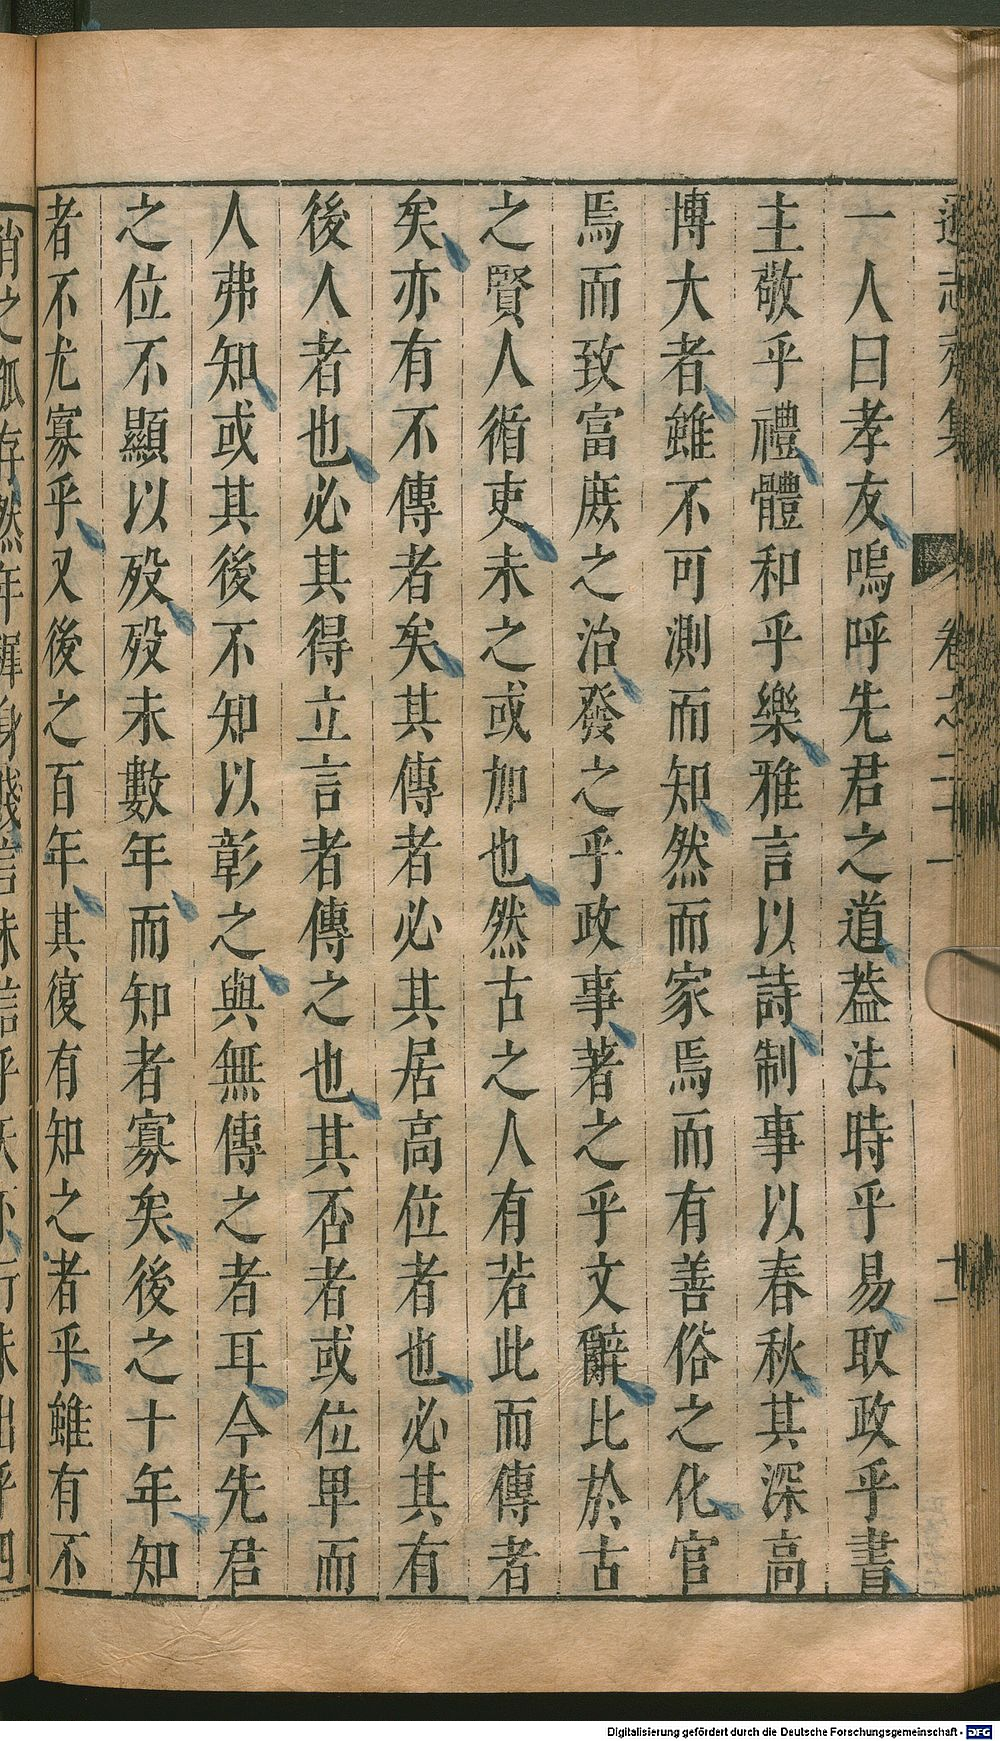 遜志齋集 卷之二十一 十一
一人曰孝友嗚呼先君之道葢法時乎易取政乎書
主敬乎禮體和乎樂雅言以詩制事以春秋其深高
博大者雖不可測而知然而家焉而有善俗之化官
焉而致富庶之治發之乎政事著之乎文辭比於古
之賢人循吏未之或加也然古之人有若此而傳者
矣亦有不傳者矣其傳者必其居高位者也必其有
後人者也必其得立言者傳之也其否者或位卑而
人弗知或其後不知以彰之與無傳之者耳今先君
之位不顯以歿歿未數年而知者寡矣後之十年知
者不尤寡乎又後之百年其復有知之者乎雖有不
Digitalisierung gefördert durch die Deutsche Forschungsgemeinschaft - DFG